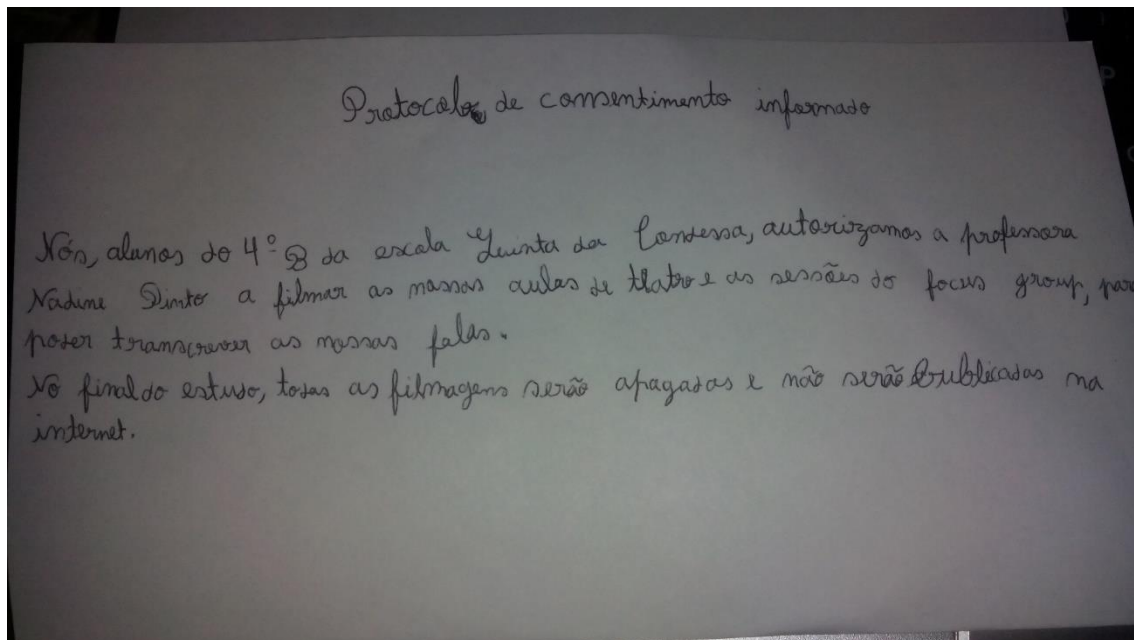 Protocolo de consentimento informado
Nós, alunos do 4º B da escola Quinta da Condessa, autorizamos a professora
Nadine Pinto a filmar as nossas aulas de teatro e as sessões do focus group, para
poder transcrever as nossas falas.
No final do estudo, todas as filmagens serão apagadas e não serão publicadas na
internet.